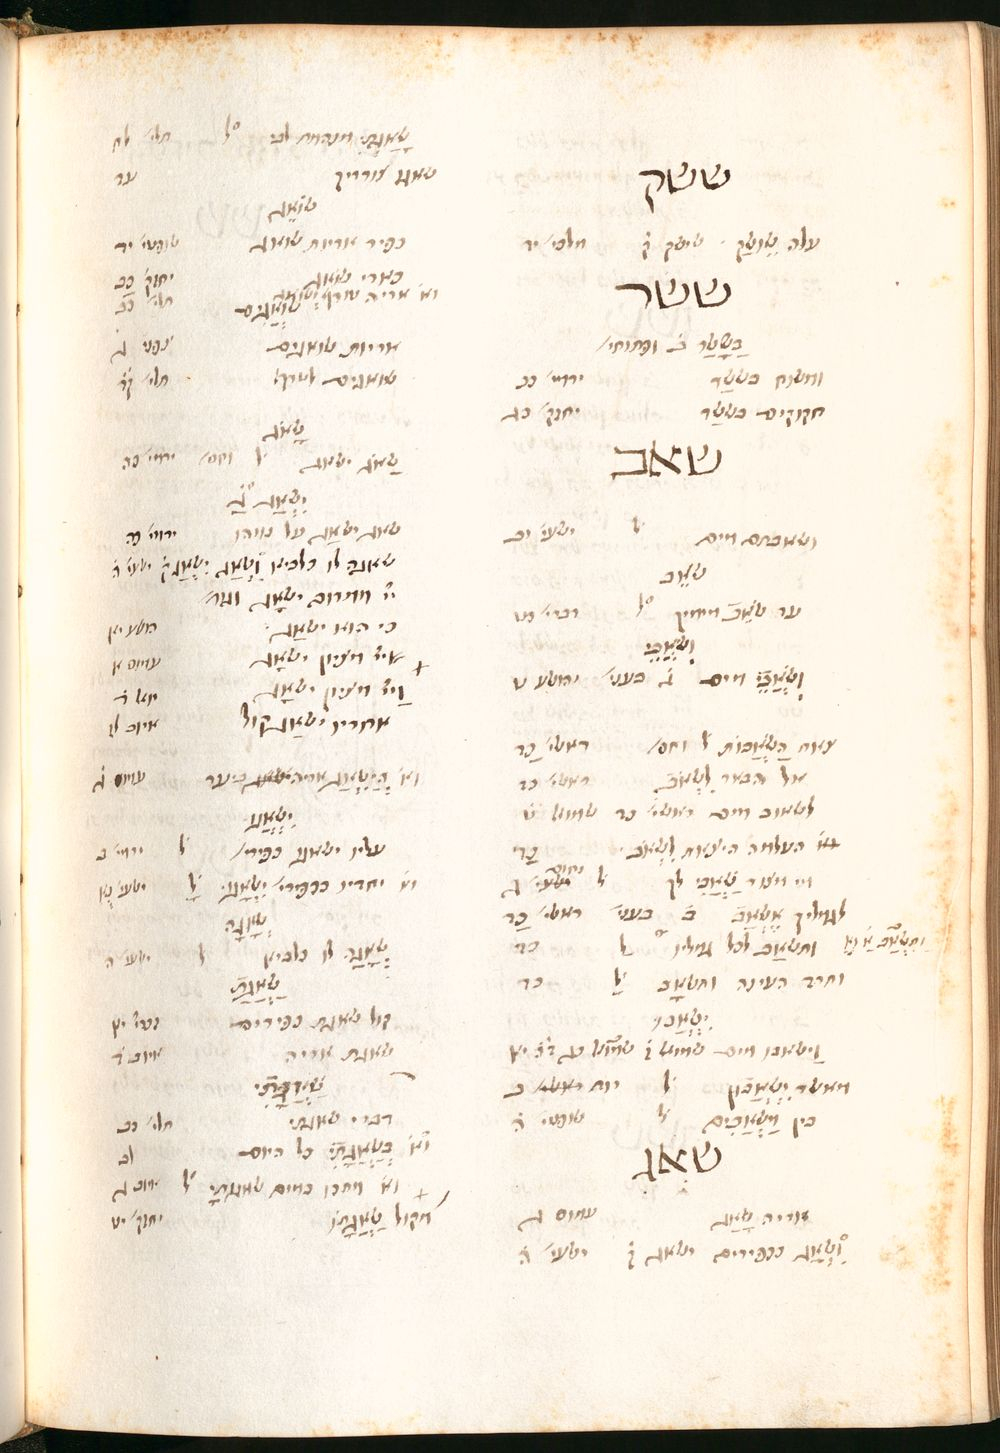 ששק
עלה שושק שישק ק מלכי׳ יד
ששר
בששר ב ופתוחי׳
ומשוח בששר ירמי׳ כב
חקוקים בששר יחזק׳ כג
שאב
ושאבתם מים ל ישעי׳ יב
שאב
עד שאב מימיך ל דברי׳ כט
ושאבי
ושאבי מים ג בעני׳ יהושע ט
צאת השאבות ל וחס׳ ראשי׳ כד
אל הבאר לשאב ראשי׳ כד
לשאוב מים ראשי׳ כד שמואל ט
העלמה היצאת לשאב כד
מי מצור שאבי לך ל נחום ג
לגמליך אשאב ב בעני׳ ראשי׳ כד
ותשאב לכל גמליו ל כד
ותרד העינה ותשאב ל כד
ישאבו
וישאבו מים שמואל
מאשר ישאבון ל רות ב
בין משאבים ל שופטי׳ ה
שאג
אריה שאג עמוס ג
ושאג ככפירים ישאג ק ישעי׳ ה
שאגתי מנהמת לבי ל תלי׳ לח
שאגו צורריך עד
שואג
כפיר אריות שואג שופטי׳ יד
כארי שואג יחזק׳ כב
וא׳ אריה טורף תלי׳ כב
שואגים
אריות שואגים צפני׳ ג
שואגים לטרף תלי׳ קד
שאג
שאג ישאג ל וחס׳ ירמי׳ כה
ישאג
שאג ישאג על נוהו ירמי׳ כה
שאגה לו כלביא ושאג ישאג ק ישעי׳ ה
יי ממרום ישאג
כי הוא ישאג הושע יא
יי מציון ישאג עמוס א
ויי מציון ישאג יואל ד
אחריו ישאג קול איוב לז
וא׳ הישאג אריה ביער עמוס ג
ישאגו
עליו ישאגו כפירי׳ ל ירמי׳ ב
וא׳ יחדיו ככפירי׳ ישאגו ל
שאגה
שאגה לו כלביא ל ישעי׳ ה
שאגת
קול שאגת כפירים זכרי׳ יא
שאגת אריה איוב ד
שאגתי
דברי שאגתי תלי׳ כב
וא׳ בשאגתי כל היום לב
וא׳ ויתכו כמים שאגתי ל איוב ג
מקול שאגתו יחזק׳ יט